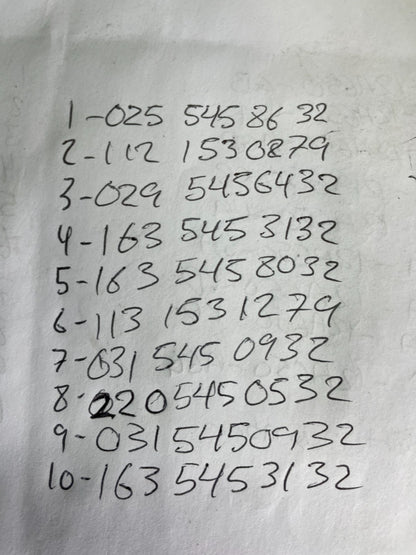 1-025 545 86 32
2-112 1530879
3-029 5456432
4-163 545 3132
5-163 545 8032
6-113 1531279
7-031 545 0932
8-220 545 0532
9-031 5450932
10-163 5453132